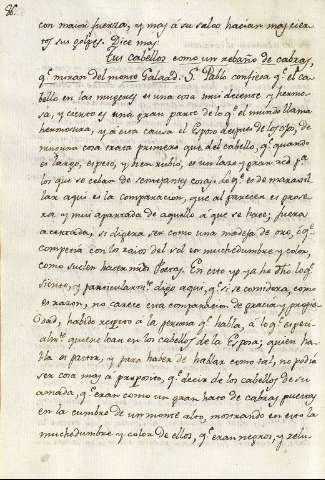 36.
con maior fuerza, y mas á su salvo hacian mas cier-
tos sus golpes. Dice mas:
Tus cabellos como un rebaño de cabras,
q.e miran del monte Galaad. S. Pablo confiesa q.e el ca-
bello en las mugeres es una cosa mui decente y hermo-
sa, y cierto es una gran parte de lo q.e el mundo llama
hermosura, y á esta causa el Esposo despues de los ojos, de
ninguna cosa trata primero que del cabello, q.e quando
es largo, espeso, y bien rubio, es un lazo y gran red p.a
los que se ceban de semejantes cosas. Lo q.e es de maravi-
llar aqui es la comparacion, que al parecer es grose-
ra y mui apartada de aquello á que se hace; fuera
acertada, si dijera ser como una madeja de oro, ó q.e
competia con los raios del sol en muchedumbre y color,
como suelen hacer n.ros Poetas. En esto yo ya he dho. lo q.e
siento; y particularm.te digo aqui q.e si se considera, como
es razon, no carece esta comparacion de gracia y propie-
dad, habido respeto á la persona q.e habla, á lo q.e especi-
alm.te quiere loar en los cabellos de la Esposa; quien ha-
bla es pastor, y para haber de hablar como tal, no podia
ser cosa mas á proposito, q.e decir de los cabellos de su
amada, q.e eran como un gran hato de cabras puestas
en la cumbre de un monte alto, mostrando en esto la
muchedumbre y color de ellos, q.e eran negros, y relu-